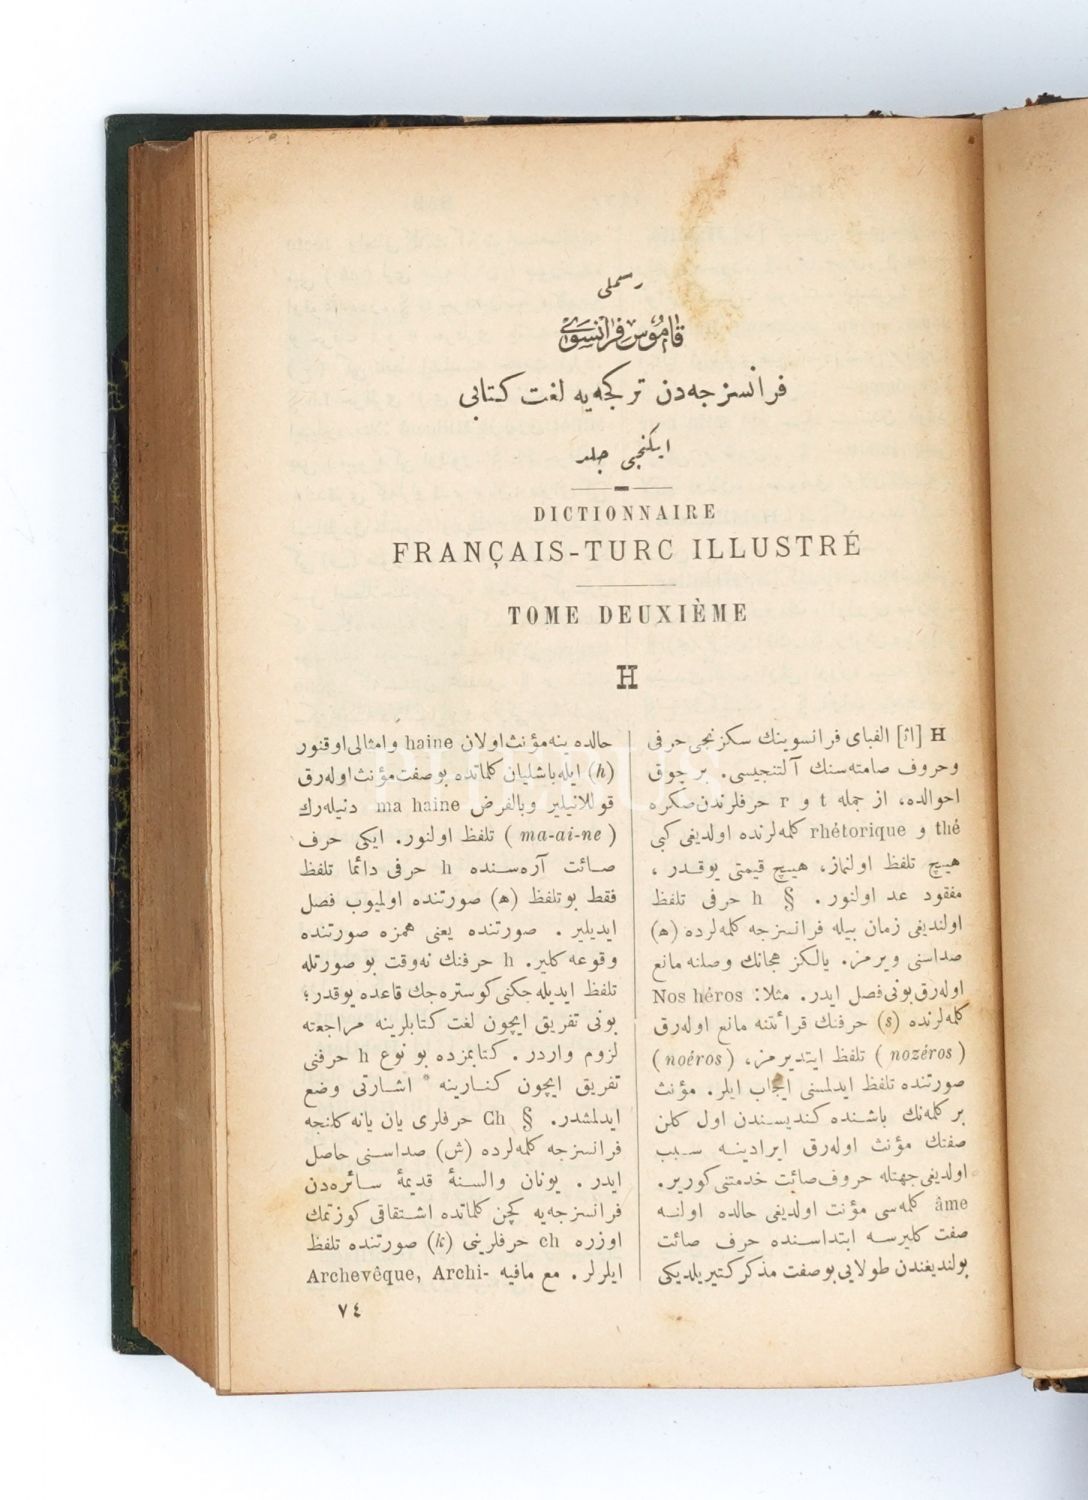 رسملی
قاموس فرانسوی
فرانسزجه‌دن ترکجه‌یه لغت کتابی
ایکنجی جلد
DICTIONNAIRE
FRANÇAIS-TURC ILLUSTRÉ
TOME DEUXIÈME
H
H [اژ] الفبای فرانسوینك سکزنجی حرفی
وحروف صامته‌سنك آلتنجیسی. برچوق
احوالده، از جمله t و r حرفلرندن‌صکره
thé و rhétorique کلمه‌لرنده اولدیغی کبی
هیچ تلفظ اولنماز، هیچ قیمتی یوقدر،
مفقود عد اولنور. § h حرفی تلفظ
اولندیغی زمان بیله فرانسزجه کلمه‌لرده (ه)
صداسنی ویرمز. یالکز هجانك وصلنه مانع
اوله‌رق‌بونی‌فصل ایدر. مثلا: Nos héros
کلمه‌لرنده (s) حرفنك قرائتنه مانع اوله‌رق
(nozéros) تلفظ ایتدیرمز، (noéros)
صورتنده تلفظ ایدلمسنی ایجاب ایلر. مؤنث
برکلمه‌نك باشنده کندیسندن اول کلن
صفتك مؤنث اوله‌رق ایرادینه سبب
اولدیغی‌جهتله حروف‌صائت خدمتنی‌کوریر.
âme کلمه‌سی مؤنت اولدیغی حالده اولنه
صفت کلیرسه ابتداسنده حرف صائت
بولندیغندن طولایی‌بوصفت مذکرکتیریلدیکی
حالده ینه‌مؤنث‌اولان haine وامثالی‌اوقنور
(h) ایله‌باشلیان‌کلماتده بوصفت‌مؤنث‌اوله‌رق
قوللانیلیر وبالفرض ma haine دنیله‌رك
(ma-ai-ne) تلفظ اولنور. ایکی حرف
صائت آره‌سنده h حرفی دائما تلفظ
فقط بوتلفظ (ه) صورتنده اولمیوب فصل
ایدیلیر. صورتنده یعنی همزه صورتنده
وقوعه کلیر. h حرفنك نه‌وقت بو صورتله
تلفظ ایدیله‌جکنی‌کوستره‌جك قاعده یوقدر؛
بونی تفریق ایچون لغت کتابلرینه مراجعته
لزوم واردر. کتابمزده بو نوع h حرفنی
تفریق ایچون کنارینه * اشارتی وضع
ایدلمشدر. § Ch حرفلری یان یانه کلنجه
فرانسزجه کلمه‌لرده (ش) صداسنی حاصل
ایدر. یونان والسنهٔ قدیمهٔ سائره‌دن
فرانسزجه‌یه کچن کلماتده اشتقاقی کوزتمك
اوزره ch حرفلرینی (k) صورتنده تلفظ
ایلرلر. مع مافیه Archevêque, Archi-
٧٤